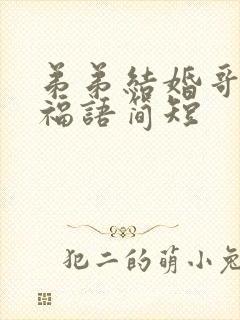 弟弟結婚哥
福語簡短
犯二的萌小兔